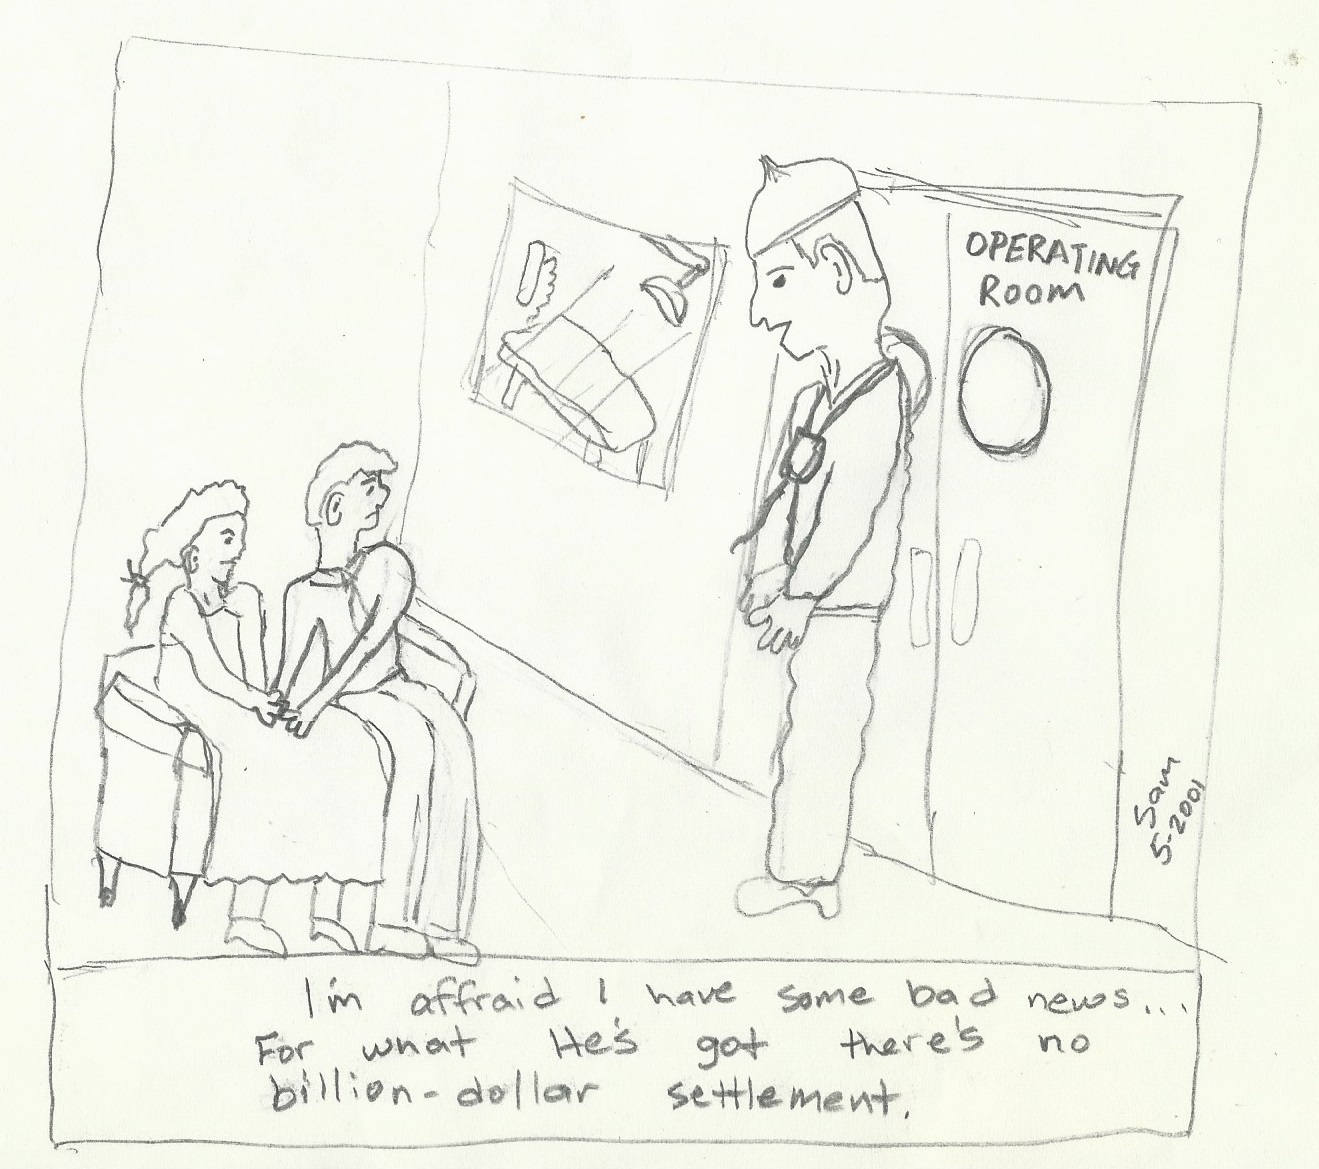 OPERATING
ROOM
Sam
5-2001
I'm affraid I have some bad news...
For what He's got there's no
billion-dollar settlement.